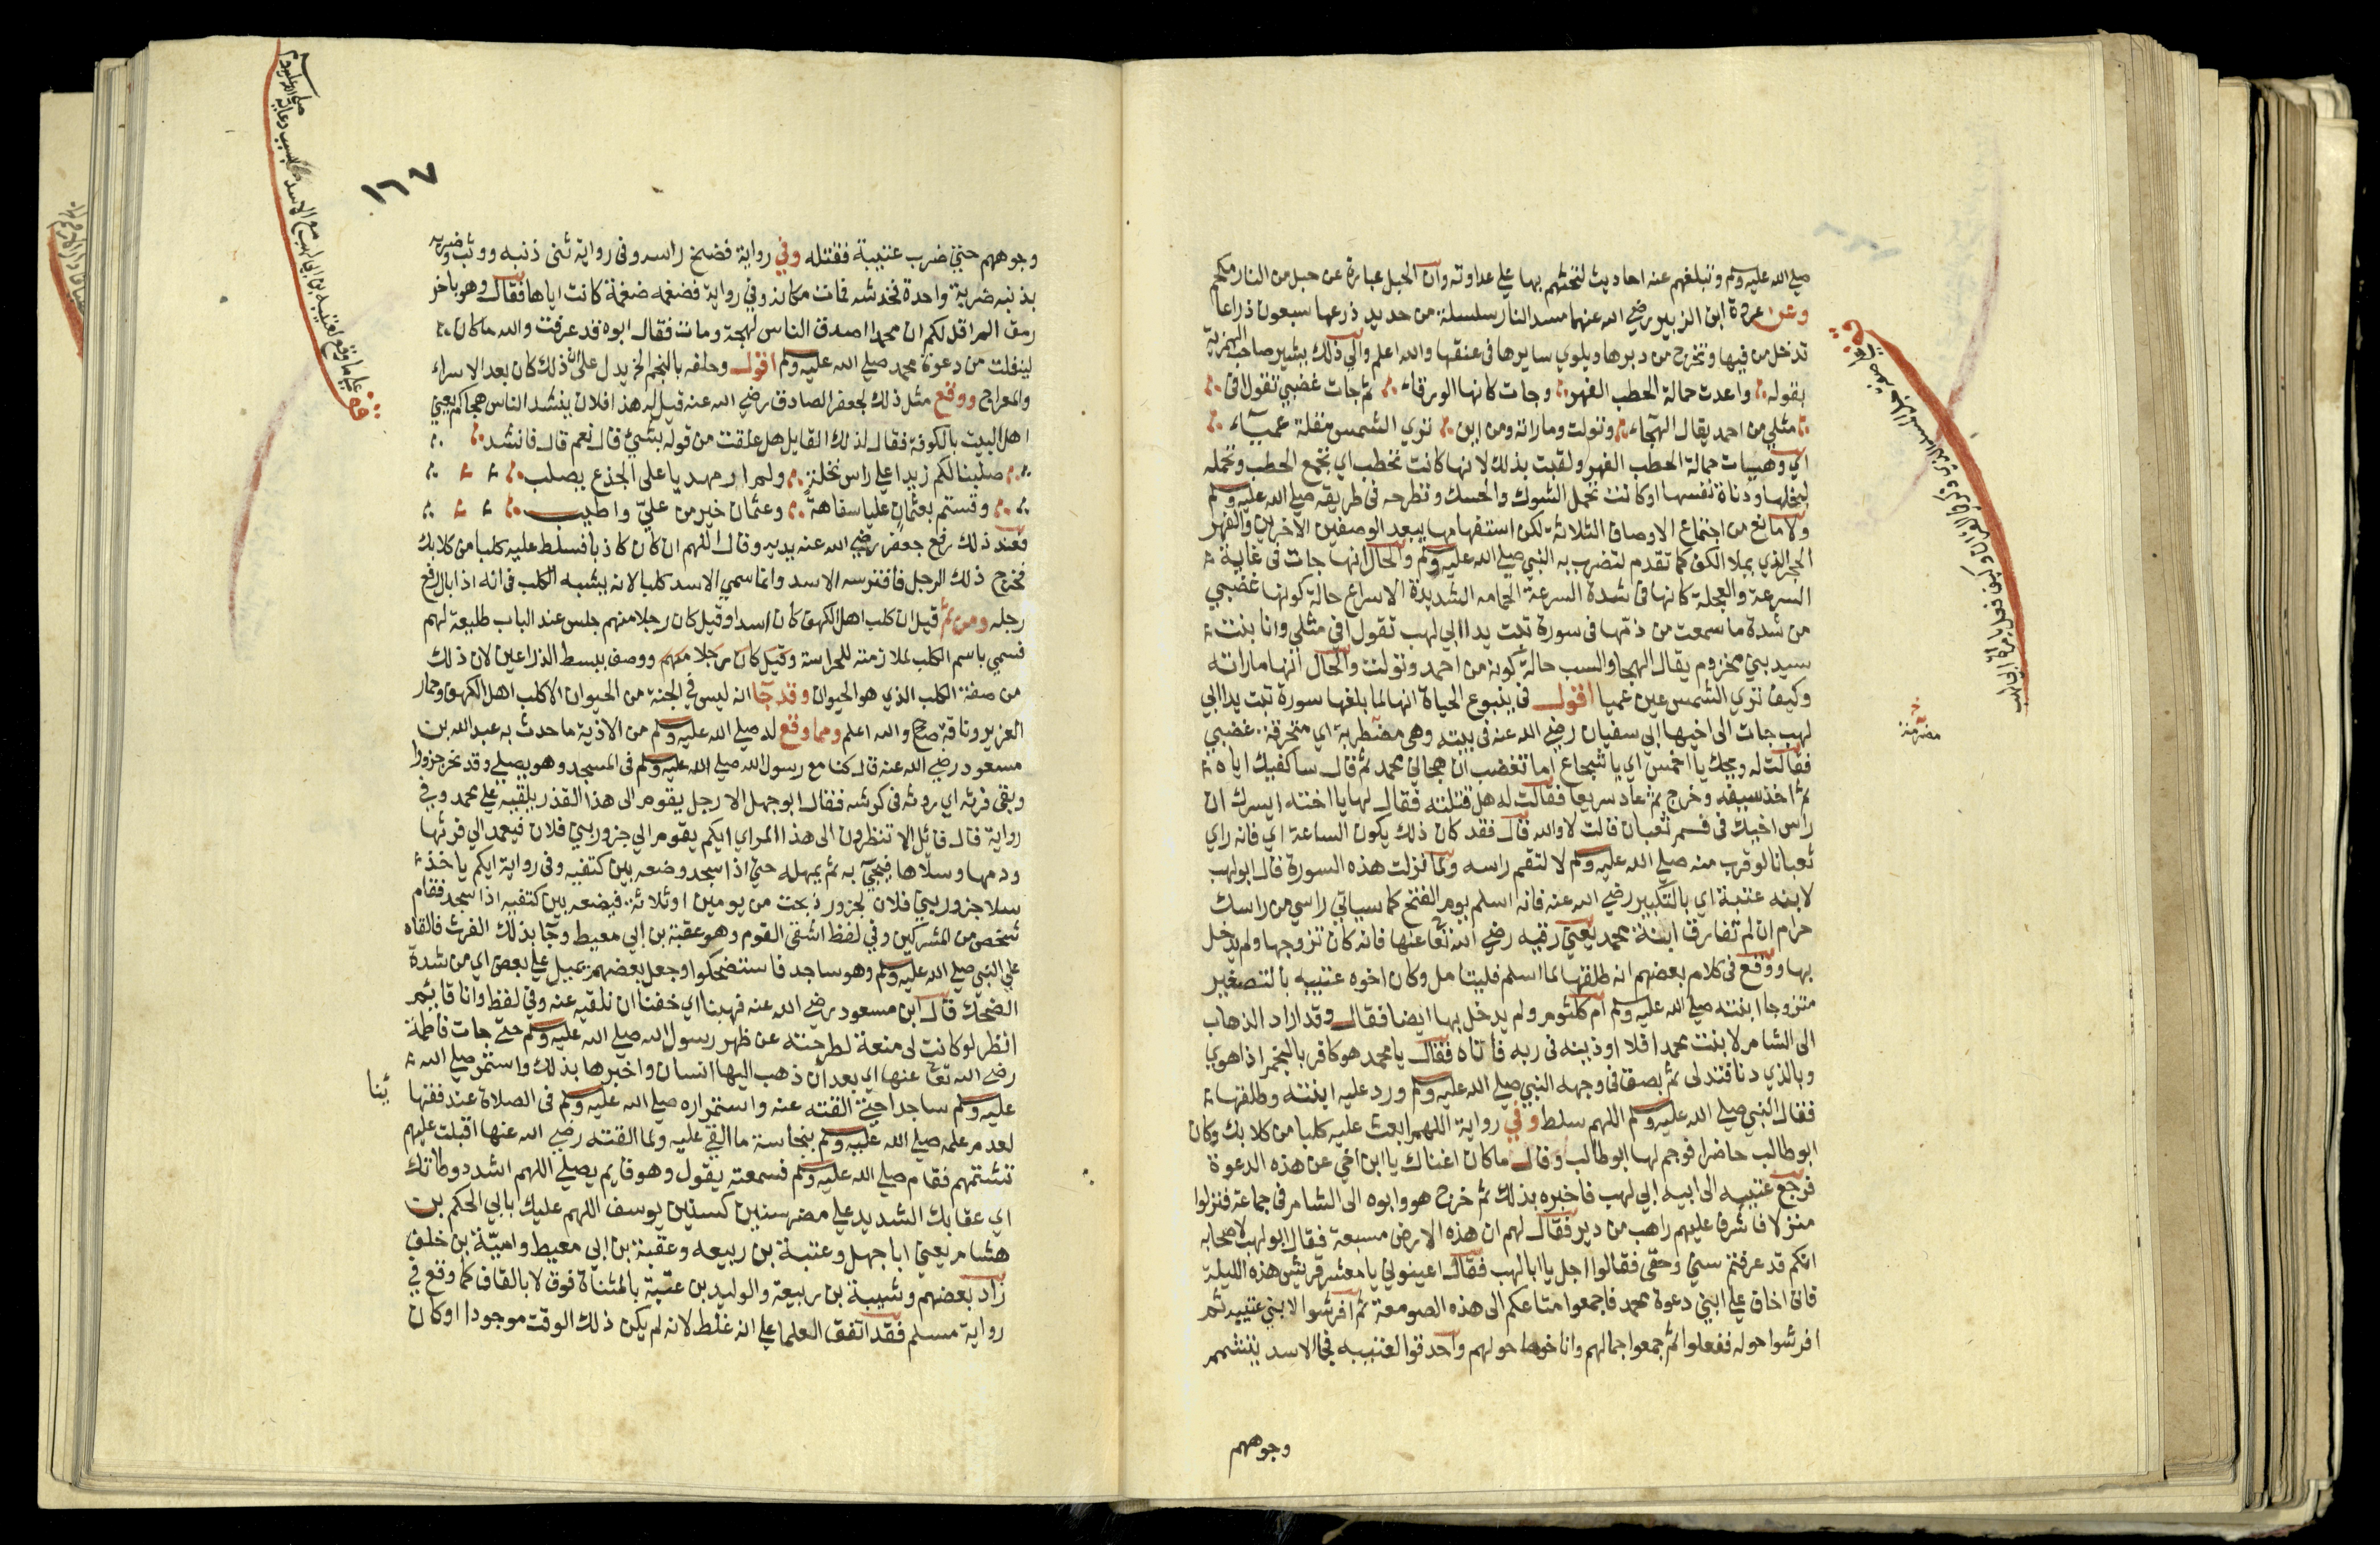 صلى الله عليه وسلم وتبلغهم عنه احاديث لتحثهم بها على عداوته وان الحبل عبارة عن حبل من النار محكم
وعن عروة ابن الزبير رضي الله عنهما مسد النار سلسلة من حديد ذرعها سبعون ذراعا
تدخل من فيها وتخرج من دبرها ويلوي سايرها في عنقها والله اعلم والى ذلك يشير صاحب الهمزية
بقوله واعدت حمالة الحطب الفهر وجات كانها الورقاء ثم جات غضبي تقول افى
مثلي من احمد يقال الهجاء وتولت وماراته ومن اين تري الشمس مقلة عمياء
اي وهييات حمالة الحطب الفهر ولقبت بذلك لانها كانت تحطب اي تجمع الحطب وتحمله
لبخلها ودناة نفسها او كانت تحمل الشوك والحسك وتطرحه في طريقه صلى الله عليه وسلم
ولا مانع من اجتماع الاوصاف الثلاثة لكن استفهامها يبعد الوصفين الاخرين والفهر
الحجر الذي يملا الكف كما تقدم لتضرب به النبي صلى الله عليه وسلم والحال انها جات في غاية
السرعة والعجلة كانها في شدة السرعة الحمامه الشديدة الاسراع حالة كونها غضبي
من شدة ما سمعت من ذمها في سورة تبت يدا ابي لهب تقول افي مثلي وانا بنت
سيد بني مخزوم يقال الهجا والسب حالة كونه من احمد وتولت والحال انها ماراته
وكيف تري الشمس عين عميا اقول في ينبوع الحياة انها لما بلغها سورة تبت يدا ابي
لهب جات الى اخيها ابي سفيان رضي الله عنه في بيته وهي مضطربة اي متحرقة غضبي
فقالت له ويحك يا احمس اي يا شجاع اما تغضب ان هجاني محمد ثم قال ساكفيك اياه
ثم اخذ سيفه وخرج ثم عاد سريعا فقالت له هل قتلته فقال لها يا اخته ايسرك ان
راس اخيك في فم ثعبان قالت لا والله قال فقد كان ذلك يكون الساعة اي فانه راي
ثعبانا لو قرب منه صلى الله عليه وسلم لالتقم راسه ولما نزلت هذه السورة قال ابولهب
لابنه عتبة اي بالتكبير رضي الله عنه فانه اسلم يوم الفتح كما سياتي راسي من راسك
حرام ان لم تفارق ابنة محمد يعني رقيه رضي الله تعا عنها فانه كان تزوجها ولم يدخل
بها ووقع في كلام بعضهم انه طلقها لما اسلم فليتامل وكان اخوه عتيبه بالتصغير
متزوجا ابنته صلى الله عليه وسلم ام كلثوم ولم يدخل بها ايضا فقال وقد اراد الذهاب
الى الشام لاتين محمدا فلاوذينه في ربه فاتاه فقال يا محمد هو كافر بالنجم اذا هوي
وبالذي دنا فتدلى ثم بصق في وجهه النبي صلى الله عليه وسلم ورد عليه ابنته وطلقها
فقال النبي صلى الله عليه وسلم اللهم سلط وفي رواية اللهم ابعث عليه كلبا من كلابك وكان
ابو طالب حاضرا فوجم لها ابو طالب وقال ما كان اغناك يا ابن اخي عن هذه الدعوة
فرجع عتيبه الى ابيه ابي لهب فاخبره بذلك ثم خرج هو وابوه الى الشام في جماعة فنزلوا
منزلا فاشرف عليهم راهب من دير فقال لهم ان هذه الارض مسبعة فقال ابو لهب لاصحابه
انكم قد عرفتم سني وحقي فقالوا اجل يا ابا لهب فقال اعينوني يا معشر قريش هذه الليلة
فاني اخاف على ابني دعوة محمد فاجمعوا متاعكم الى هذه الصومعة ثم افرشوا لابني عتيبه ثم
افرشوا حوله ففعلوا ثم جمعوا جمالهم واناخوها حولهم واحدقوا لعتيبه فجا الاسد يتشمم
وجوههم
١٦٧
وجوههم حتى ضرب عتيبة فقتله وفي رواية فضخ راسه وفي رواية ثنى ذنبه ووثب وضربه
بذنبه ضربة واحدة فخدشه فمات مكانه وفي رواية فضغمه ضغمة كانت اياها فقال وهو باخر
رمق الم اقل لكم ان محمدا اصدق الناس لهجة ومات فقال ابوه قد عرفت والله ما كان
لينفلت من دعوة محمد صلى الله عليه وسلم اقول وحلفه بالنجم الخ يدل على ان ذلك كان بعد الاسراء
والمعراج ووقع مثل ذلك لجعفر الصادق رضي الله عنه قيل له هذا فلان ينشد الناس هجاكم يعني
اهل البيت بالكوفة فقال لذلك القايل هل علقت من قوله بشي قال نعم قال فانشد
صلبنا لكم زيدا على راس نخلة ولم ار مهديا على الجذع يصلب
وقستم بعثمان عليا سفاهة وعثمان خير من علي واطيب
فعند ذلك رفع جعفر رضي الله عنه يديه وقال اللهم ان كان كاذبا فسلط عليه كلبا من كلابك
فخرج ذلك الرجل فافترسه الاسد وانما سمي الاسد كلبا لانه يشبه الكلب في انه اذا بال رفع
رجله ومن ثم قيل ان كلب اهل الكهف كان اسدا وقيل كان رجلا منهم جلس عند الباب طليعة لهم
فسمي باسم الكلب لملازمته للحراسة وقيل كان رجلا منهم ووصف ببسط الذراعين لان ذلك
من صفة الكلب الذي هو الحيوان وقد جا انه ليس في الجنة من الحيوان الا كلب اهل الكهف وحمار
العزير وناقة صالح والله اعلم ومما وقع له صلى الله عليه وسلم من الاذية ما حدث به عبد الله بن
مسعود رضي الله عنه قال كنا مع رسول الله صلى الله عليه وسلم في المسجد وهو يصلي وقد نحر جزور
وبقي فرثه اي روثه في كرشه فقال ابو جهل الا رجل يقوم الى هذا القذر يلقيه على محمد وفي
رواية قال قائل الا تنظرون الى هذا المراي ايكم يقوم الي جزور بني فلان فيعمد الي فرثها
ودمها وسلاها فيجي به ثم يمهله حتى اذا سجد وضعه بين كتفيه وفي رواية ايكم ياخذ
سلا جزور بني فلان لجزور ذبحت من يومين او ثلاثة فيضعه بين كتفيه اذا سجد فقام
شخص من المشركين وفي لفظ اشقى القوم وهو عقبة بن ابي معيط وجا بذلك الفرث فالقاه
على النبي صلى الله عليه وسلم وهو ساجد فاستضحكوا وجعل بعضهم يميل على بعض اي من شدة
الضحك قال ابن مسعود رضي الله عنه فهبنا اي خفنا ان نلقيه عنه وفي لفظ وانا قايم
انظر لو كانت لى منعة لطرحته عن ظهر رسول الله صلى الله عليه وسلم حتى جات فاطمة
رضي الله تعا عنها اي بعد ان ذهب اليها انسان واخبرها بذلك واستمر صلى الله
عليه وسلم ساجدا حتى القته عنه واستمراره صلى الله عليه وسلم في الصلاة عند فقها ئنا
لعدم علمه صلى الله عليه وسلم بنجاسة ما القي عليه ولما القته رضي الله عنها اقبلت عليهم
تشتمهم فقام صلى الله عليه وسلم فسمعته يقول وهو قايم يصلي اللهم اشدد وطاتك
اي عقابك الشديد على مضر سنين كسنين يوسف اللهم عليك بابي الحكم بن
هشام يعني ابا جهل وعتبة بن ربيعه وعقبة بن ابي معيط واميّة بن خلف
زاد بعضهم وشيبة بن ربيعة والوليد بن عتبة بالمثناة فوق لا بالقاف كما وقع في
رواية مسلم فقد اتفق العلما على انه غلط لانه لم يكن ذلك الوقت موجودا او كان